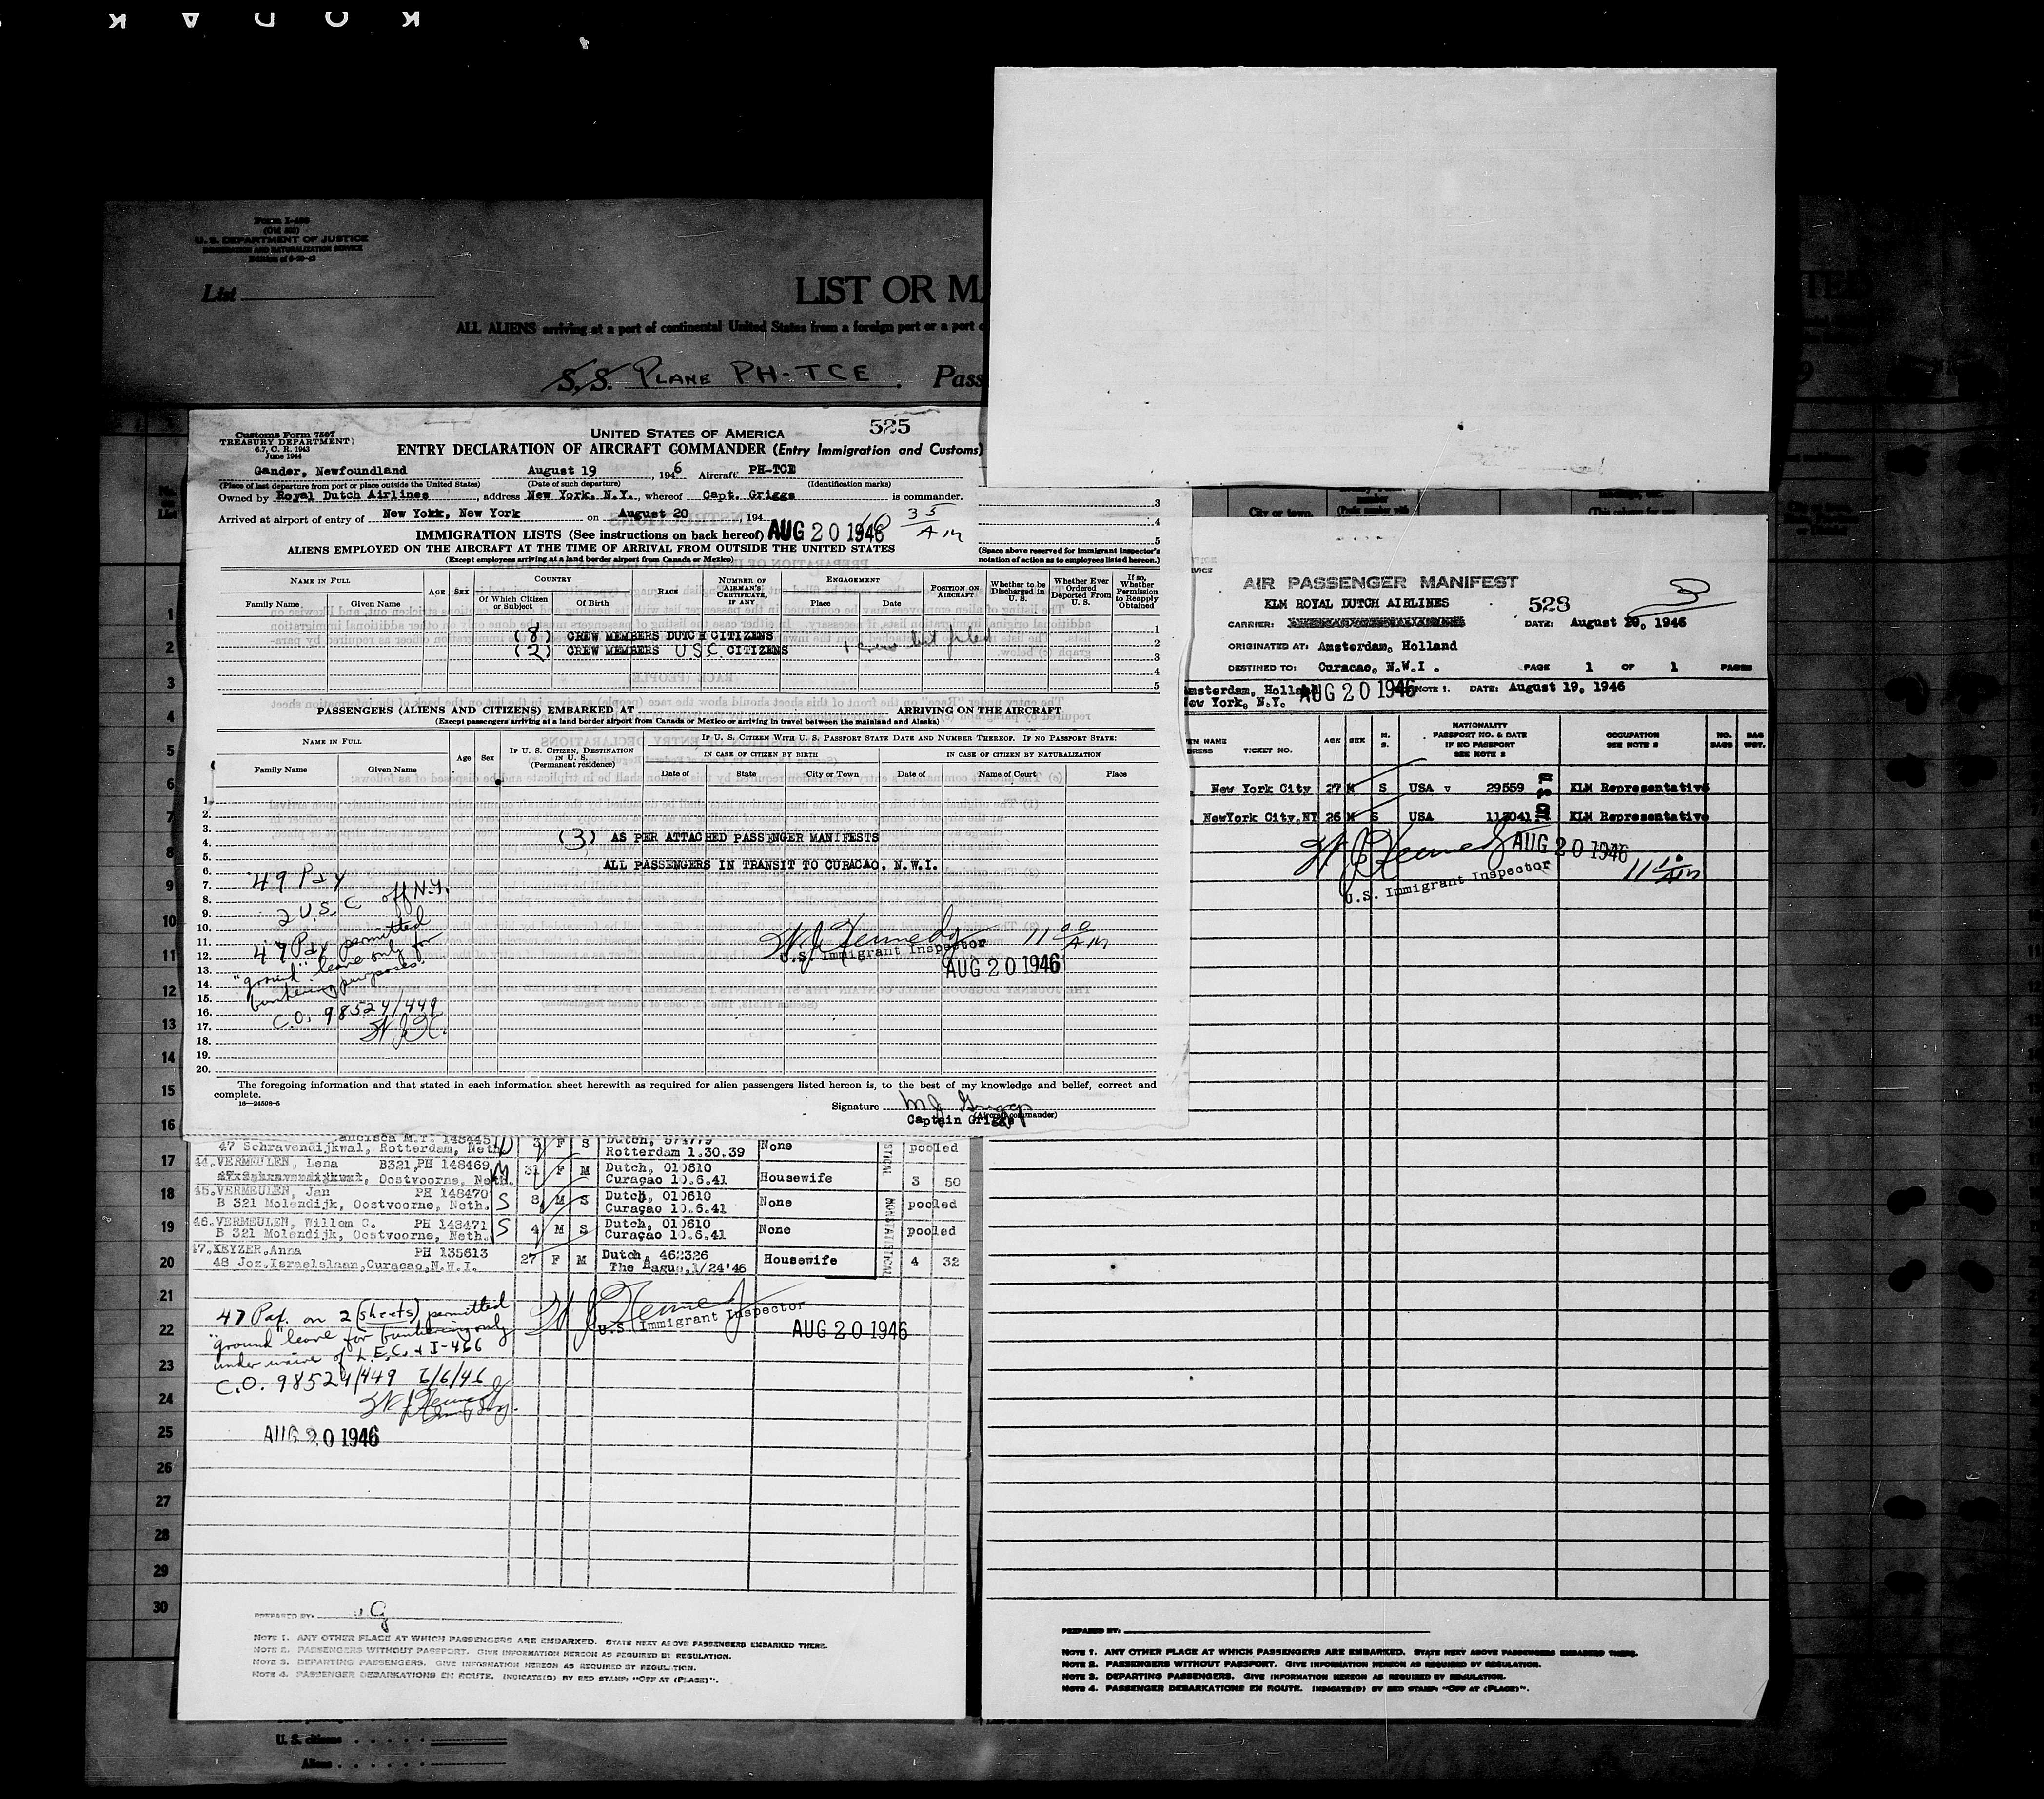 KODAK
Form I-488
(Old 500)
U. S. DEPARTMENT OF JUSTICE
IMMIGRATION AND NATURALIZATION SERVICE
List
LIST OR MA
ALL ALIENS arriving at a port of continental United States from a foreign port or a port o
S.S. PLANE PH-TCE. Pass
Customs Form 7507
TREASURY DEPARTMENT
6.7, C. R. 1943
June 1944
UNITED STATES OF AMERICA
525
ENTRY DECLARATION OF AIRCRAFT COMMANDER (Entry Immigration and Customs)
Gander, Newfoundland August 19, 1946 Aircraft PH-TCE
(Place of last departure from port or place outside the United States) (Date of such departure) (Identification marks)
Owned by Royal Dutch Airlines, address New York, N.Y., whereof Capt. Griggs is commander.
Arrived at airport of entry of New York, New York on August 20, 194
AUG 20 1946
10 35 AM
IMMIGRATION LISTS (See instructions on back hereof)
ALIENS EMPLOYED ON THE AIRCRAFT AT THE TIME OF ARRIVAL FROM OUTSIDE THE UNITED STATES
(Except employees arriving at a land border airport from Canada or Mexico)
(Space above reserved for immigrant inspector's notation of action as to employees listed hereon.)
NAME IN FULL
Family Name Given Name
AGE SEX
COUNTRY
Of Which Citizen or Subject Of Birth
RACE
NUMBER OF AIRMAN'S CERTIFICATE, IF ANY
ENGAGEMENT
Place Date
POSITION ON AIRCRAFT
Whether to be Discharged in U. S.
Whether Ever Ordered Deported From U. S.
If so, Whether Permission to Reapply Obtained
(8) CREW MEMBERS DUTCH CITIZENS
(2) CREW MEMBERS U S C CITIZENS
crew list filed
PASSENGERS (ALIENS AND CITIZENS) EMBARKED AT ARRIVING ON THE AIRCRAFT
(Except passengers arriving at a land border airport from Canada or Mexico or arriving in travel between the mainland and Alaska)
NAME IN FULL
Family Name Given Name
Age Sex
IF U. S. CITIZEN, DESTINATION IN U. S.
(Permanent residence)
IF U. S. CITIZEN WITH U. S. PASSPORT STATE DATE AND NUMBER THEREOF. IF NO PASSPORT STATE:
IN CASE OF CITIZEN BY BIRTH IN CASE OF CITIZEN BY NATURALIZATION
Date of State City or Town Date of Name of Court Place
(3) AS PER ATTACHED PASSENGER MANIFESTS
ALL PASSENGERS IN TRANSIT TO CURACAO, N.W.I.
49 Pax
2 U.S.C. off N.Y.
47 Pax permitted
"ground" leave only for
bunkering purposes.
C.O. 98524/449
W.J.K.
W J Kennedy 11 00 AM
U.S. Immigrant Inspector
AUG 20 1946
The foregoing information and that stated in each information sheet herewith as required for alien passengers listed hereon is, to the best of my knowledge and belief, correct and complete.
16—24598-5
Signature M J Griggs
(Aircraft commander)
Captain Griggs
ancisca M.T. 148445 3 F S Dutch, 574779 None pooled
47 Schravendijkwal, Rotterdam, Neth. Rotterdam 1.30.39
44. VERMEULEN, Lena B321 PH 148469 M 31 F M Dutch, 010610 Housewife 3 50
Oostvoorne, Neth. Curaçao 10.6.41
45. VERMEULEN, Jan PH 148470 S 8 M S Dutch, 010610 None pooled
B 321 Molendijk, Oostvoorne, Neth. Curaçao 10.6.41
46. VERMEULEN, Willem C. PH 148471 S 4 M S Dutch, 010610 None pooled
B 321 Molendijk, Oostvoorne, Neth. Curaçao 10.6.41
47. KEYZER, Anna PH 135613 27 F M Dutch, 462326 Housewife 4 32
48 Joz.Israelslaan, Curacao, N.W.I. The Hague, 1/24'46
NONSTATISTICAL
47 Pax. on 2 (sheets) permitted
"ground" leave for bunkering only
under waive of L.E.C. & I-466
C.O. 98524/449 6/6/46
W J Kennedy
AUG 20 1946
W J Kennedy
U.S. Immigrant Inspector
AUG 20 1946
PREPARED BY:
NOTE 1. ANY OTHER PLACE AT WHICH PASSENGERS ARE EMBARKED. STATE NEXT ABOVE PASSENGERS EMBARKED THERE.
NOTE 2. PASSENGERS WITHOUT PASSPORT. GIVE INFORMATION HEREON AS REQUIRED BY REGULATION.
NOTE 3. DEPARTING PASSENGERS. GIVE INFORMATION HEREON AS REQUIRED BY REGULATION.
NOTE 4. PASSENGER DEBARKATIONS EN ROUTE. INDICATE(D) BY RED STAMP: "OFF AT (PLACE)".
U. S. citizens
Aliens
AIR PASSENGER MANIFEST
3
KLM ROYAL DUTCH AIRLINES 528
CARRIER: DATE: August 20, 1946
ORIGINATED AT: Amsterdam, Holland
DESTINED TO: Curacao, N.W.I. PAGE 1 OF 1 PAGES
Amsterdam, Holland AUG 20 1946 NOTE 1. DATE: August 19, 1946
New York, N.Y.
TICKET NO. AGE SEX M. S. NATIONALITY PASSPORT NO. & DATE IF NO PASSPORT SEE NOTE 2 OCCUPATION SEE NOTE 2 NO. BAGS BAG WGT.
New York City 27 M S USA v 29559 KLM Representative
NewYork City, NY 26 M S USA 113041 KLM Representative
W J Kennedy
U.S. Immigrant Inspector
AUG 20 1946
11 10 AM
PREPARED BY:
NOTE 1. ANY OTHER PLACE AT WHICH PASSENGERS ARE EMBARKED. STATE NEXT ABOVE PASSENGERS EMBARKED THERE.
NOTE 2. PASSENGERS WITHOUT PASSPORT. GIVE INFORMATION HEREON AS REQUIRED BY REGULATION.
NOTE 3. DEPARTING PASSENGERS. GIVE INFORMATION HEREON AS REQUIRED BY REGULATION.
NOTE 4. PASSENGER DEBARKATIONS EN ROUTE. INDICATE(D) BY RED STAMP: "OFF AT (PLACE)".